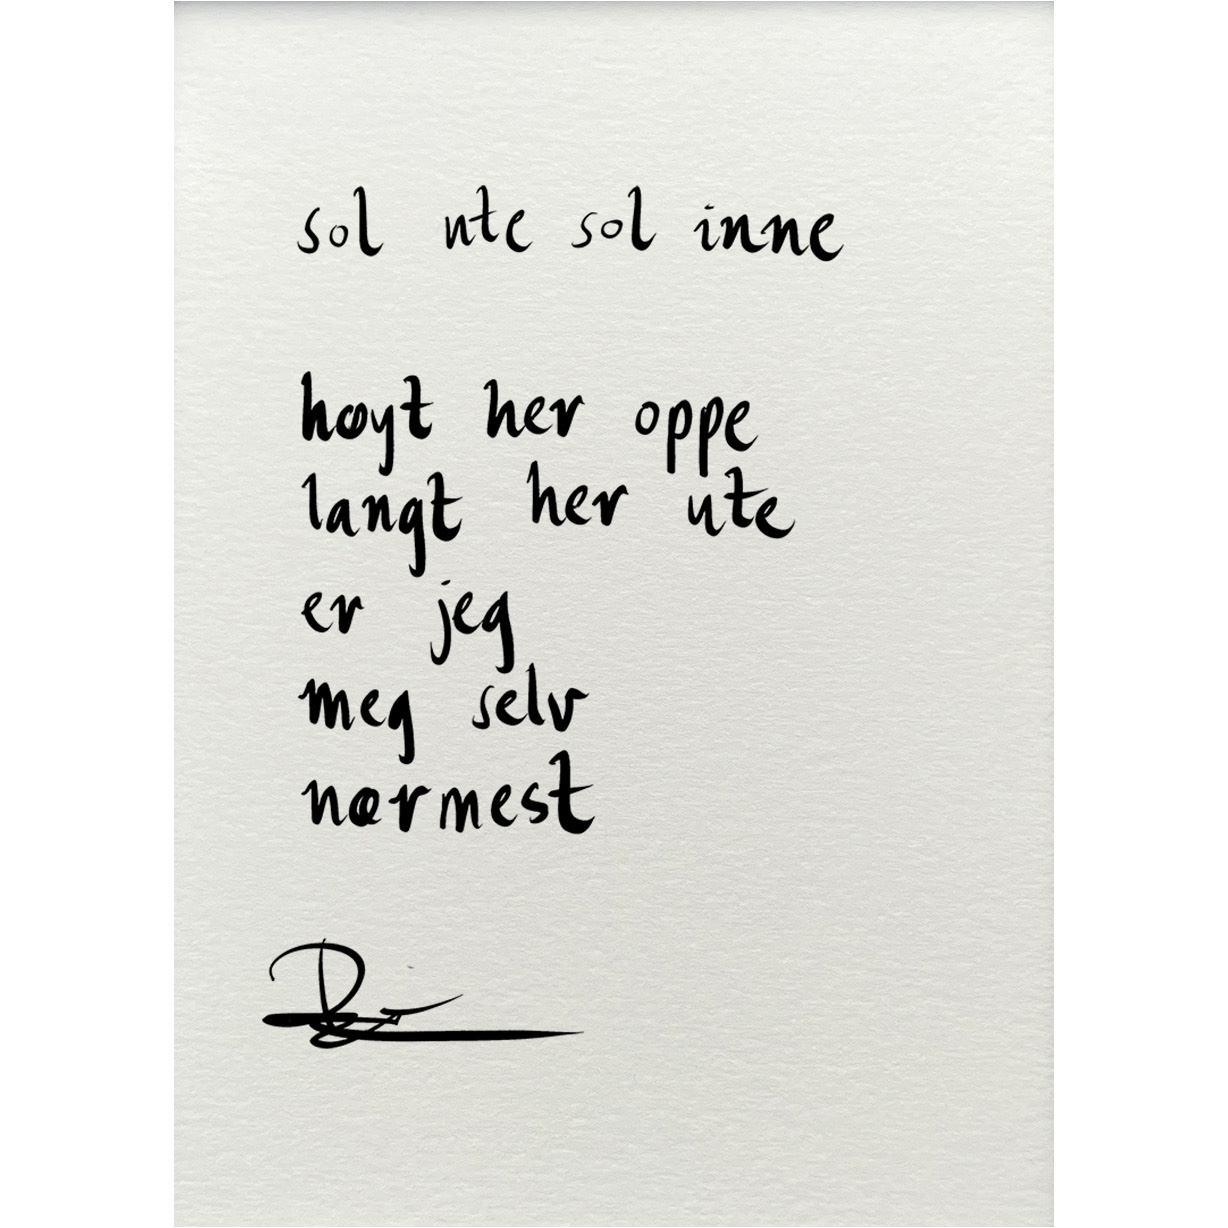 sol ute sol inne
høyt her oppe
langt her ute
er jeg
meg selv
nærmest